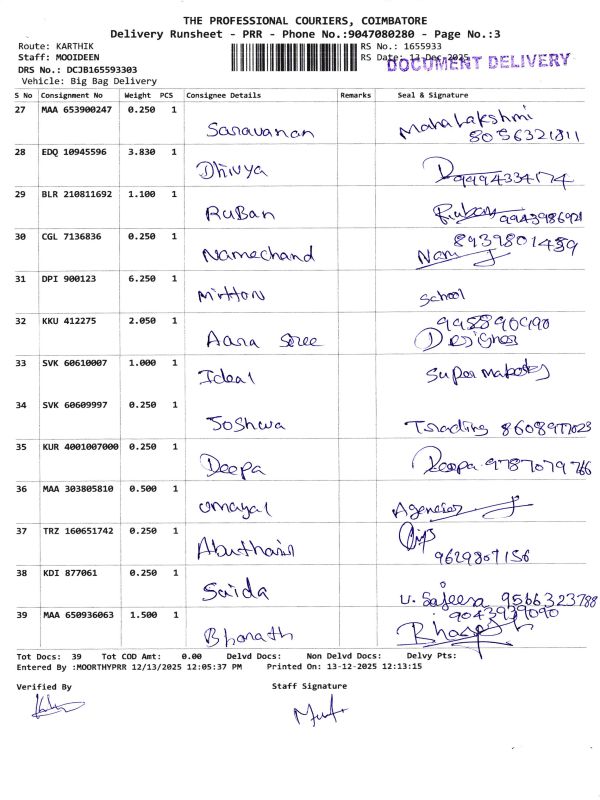 THE PROFESSIONAL COURIERS, COIMBATORE
Delivery Runsheet - PRR - Phone No.:9047080280 - Page No.:3
Route: KARTHIK RS No.: 1655933
Staff: MOOIDEEN RS Date: 13-Dec-2025
DOCUMENT DELIVERY
DRS No.: DCJB165593303
Vehicle: Big Bag Delivery
S No Consignment No Weight PCS Consignee Details Remarks Seal & Signature
27 MAA 653900247 0.250 1 Saravanan Mahalakshmi
8056321811
28 EDQ 10945596 3.830 1 Dhivya 9994334174
29 BLR 210811692 1.100 1 RuBan Ruban 9943986921
30 CGL 7136836 0.250 1 Namechand 8939801439
31 DPI 900123 6.250 1 School
32 KKU 412275 2.050 1 Aara Sree
Designer
33 SVK 60610007 1.000 1 Ideal Super
34 SVK 60609997 0.250 1 Joshwa Trading
35 KUR 4001007000 0.250 1 Deepa Deepa 9787079766
36 MAA 303805810 0.500 1 omayal Agencies
37 TRZ 160651742 0.250 1
9629807156
38 KDI 877061 0.250 1 Saida U. Sajeesa 9566323788
39 MAA 650936063 1.500 1 Bharath 9043939090
Tot Docs: 39 Tot COD Amt: 0.00 Delvd Docs: Non Delvd Docs: Delvy Pts:
Entered By :MOORTHYPRR 12/13/2025 12:05:37 PM Printed On: 13-12-2025 12:13:15
Verified By Staff Signature